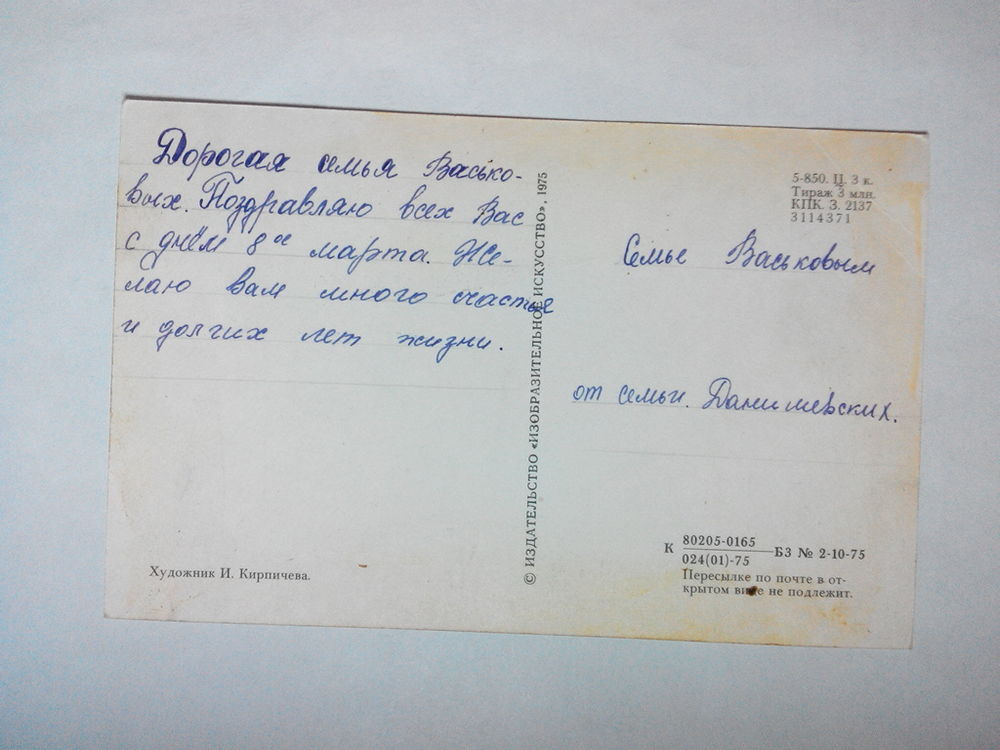 Дорогая семья Васько-
вых. Поздравляю всех Вас
с днём 8ое марта. Же-
лаю вам много счастье
и долгих лет жизни.
Художник И. Кирпичева.
© ИЗДАТЕЛЬСТВО «ИЗОБРАЗИТЕЛЬНОЕ ИСКУССТВО», 1975
5-850. II. 3 к.
Тираж 3 млн.
КПК. З. 2137
3114371
Семье Васьковым
от семьи. Данилевских.
К 80205-0165 БЗ № 2-10-75
024(01)-75
Пересылке по почте в от-
крытом виде не подлежит.